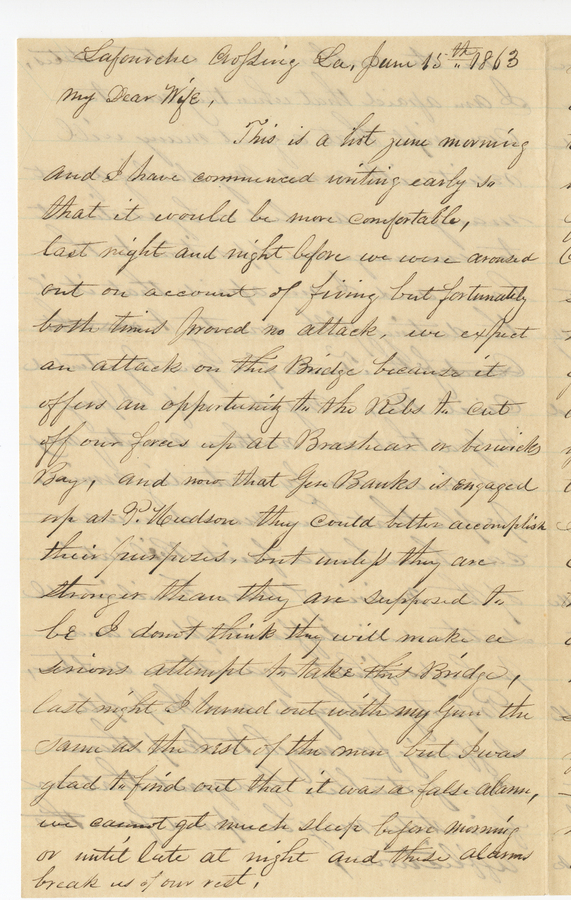 Lafourche Crossing La, June 15th 1863
My Dear Wife,
This is a hot june morning
and I have commenced writing early so
that it would be more comfortable,
last night and night before we were aroused
out on account of firing but fortunately
both times proved no attack, we expect
an attack on this Bridge because it
offers an opportunity to the Rebs to cut
off our forces up at Brashear or berwicks
Bay, and now that Gen Banks is engaged
up at P. Hudson they could better accomplish
their purposes, but unless they are
stronger than they are supposed to
be I dont think they will make a
serious attempt to take this Bridge,
last night I turned out with my Gun the
same as the rest of the men but I was
glad to find out that it was a false alarm,
we cannot get much sleep before morning
or until late at night and these alarms
break us of our rest,